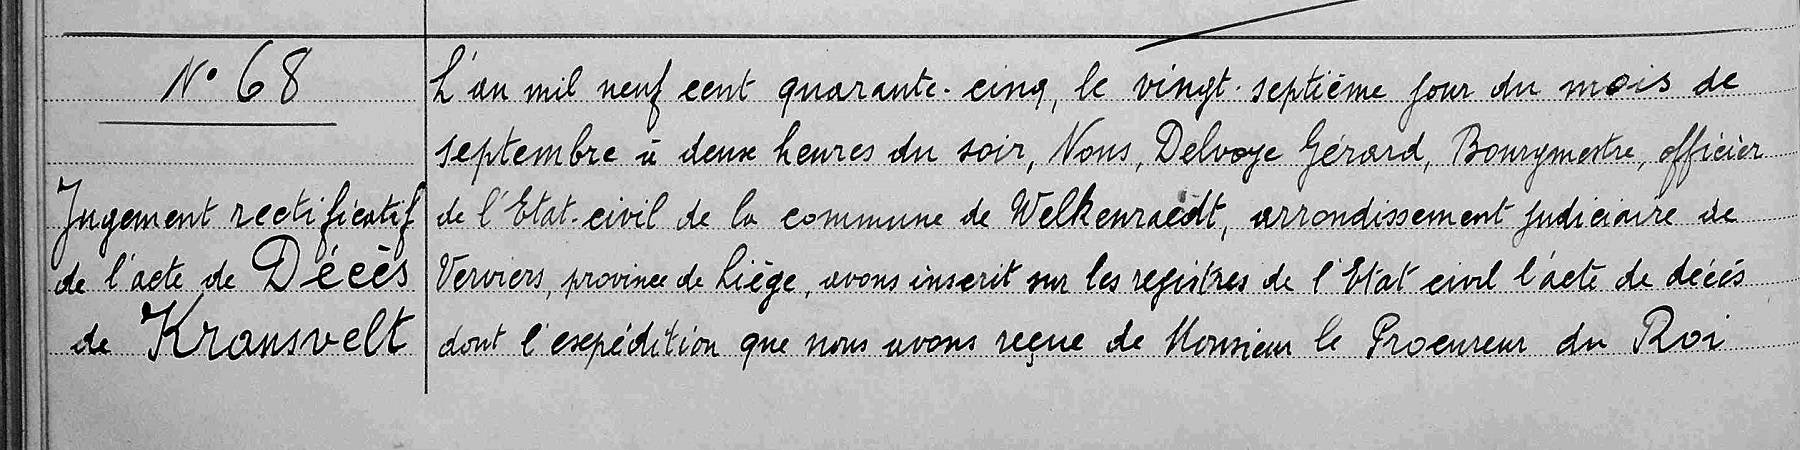 N° 68
Jugement rectificatif
de l'acte de Décès
de Kransvelt
L'an mil neuf cent quarante-cinq, le vingt-septième jour du mois de
septembre à deux heures du soir, Nous, Delvoye Gérard, Bourgmestre, officier
de l'Etat-civil de la commune de Welkenraedt, arrondissement judiciaire de
Verviers, province de Liège, avons inscrit sur les registres de l'Etat civil l'acte de décès
dont l'expédition que nous avons reçue de Monsieur le Procureur du Roi